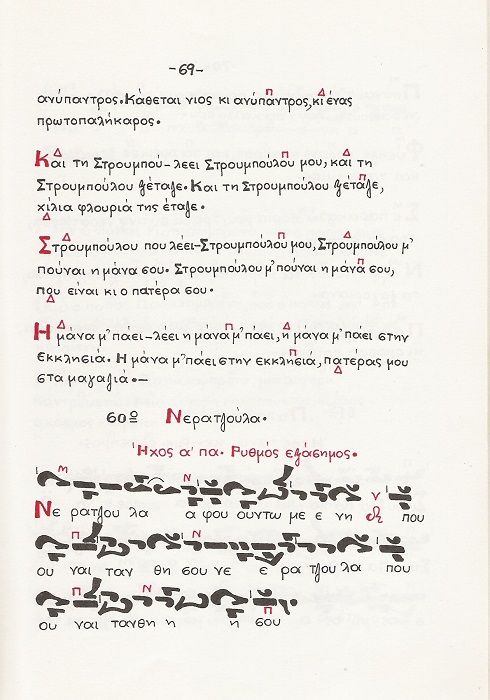 -69-
ανύπαντρος. Κάθεται νιος κι ανύπαντρος, κι ένας
πρωτοπαλήκαρος.
Και τη Στρουμπού-λεει Στρουμπούλου μου, και τη
Στρουμπούλου ξέταζε. Και τη Στρουμπούλου ξέταζε,
χίλια φλουριά της έταζε.
Στρουμπούλου που λέει-Στρουμπούλου μου, Στρουμπούλου μ'
πούναι η μάνα σου. Στρουμπούλου μ' πούναι η μάνα σου,
που είναι κι ο πατέρα σου.
Η μάνα μ' πάει-λέει η μάνα μ' πάει, η μάνα μ' πάει στην
εκκλησιά. Η μάνα μ' πάει στην εκκλησιά, πατέρας μου
στα μαγαζιά.-
60º Νερατζούλα.
Ήχος α' πα. Ρυθμός εξάσημος.
Νε ρατζου λα α φου ουντω με ε νη που
ου ναι ταν θη σου νε ε ρα τζου λα που
ου ναι τανθη η η σου